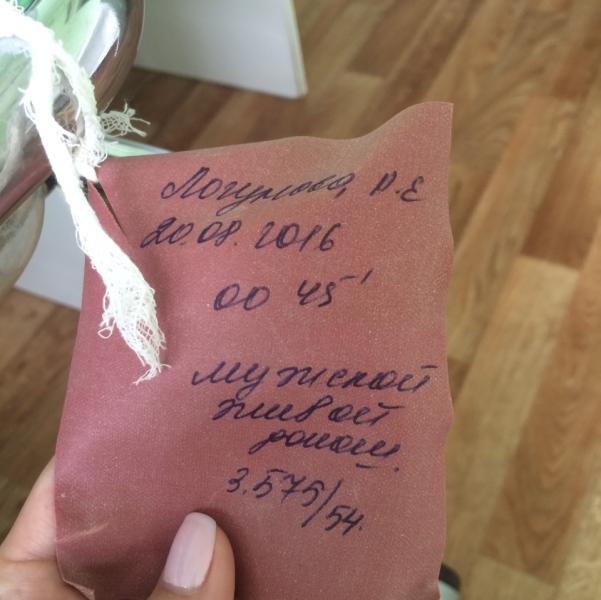 Логунова, Н.Е
20.08.2016
00 45'
мужской
живой
донош.
3.575/54.